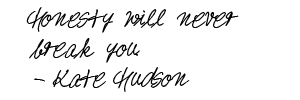 Honesty will never
break you.
- Kate Hudson